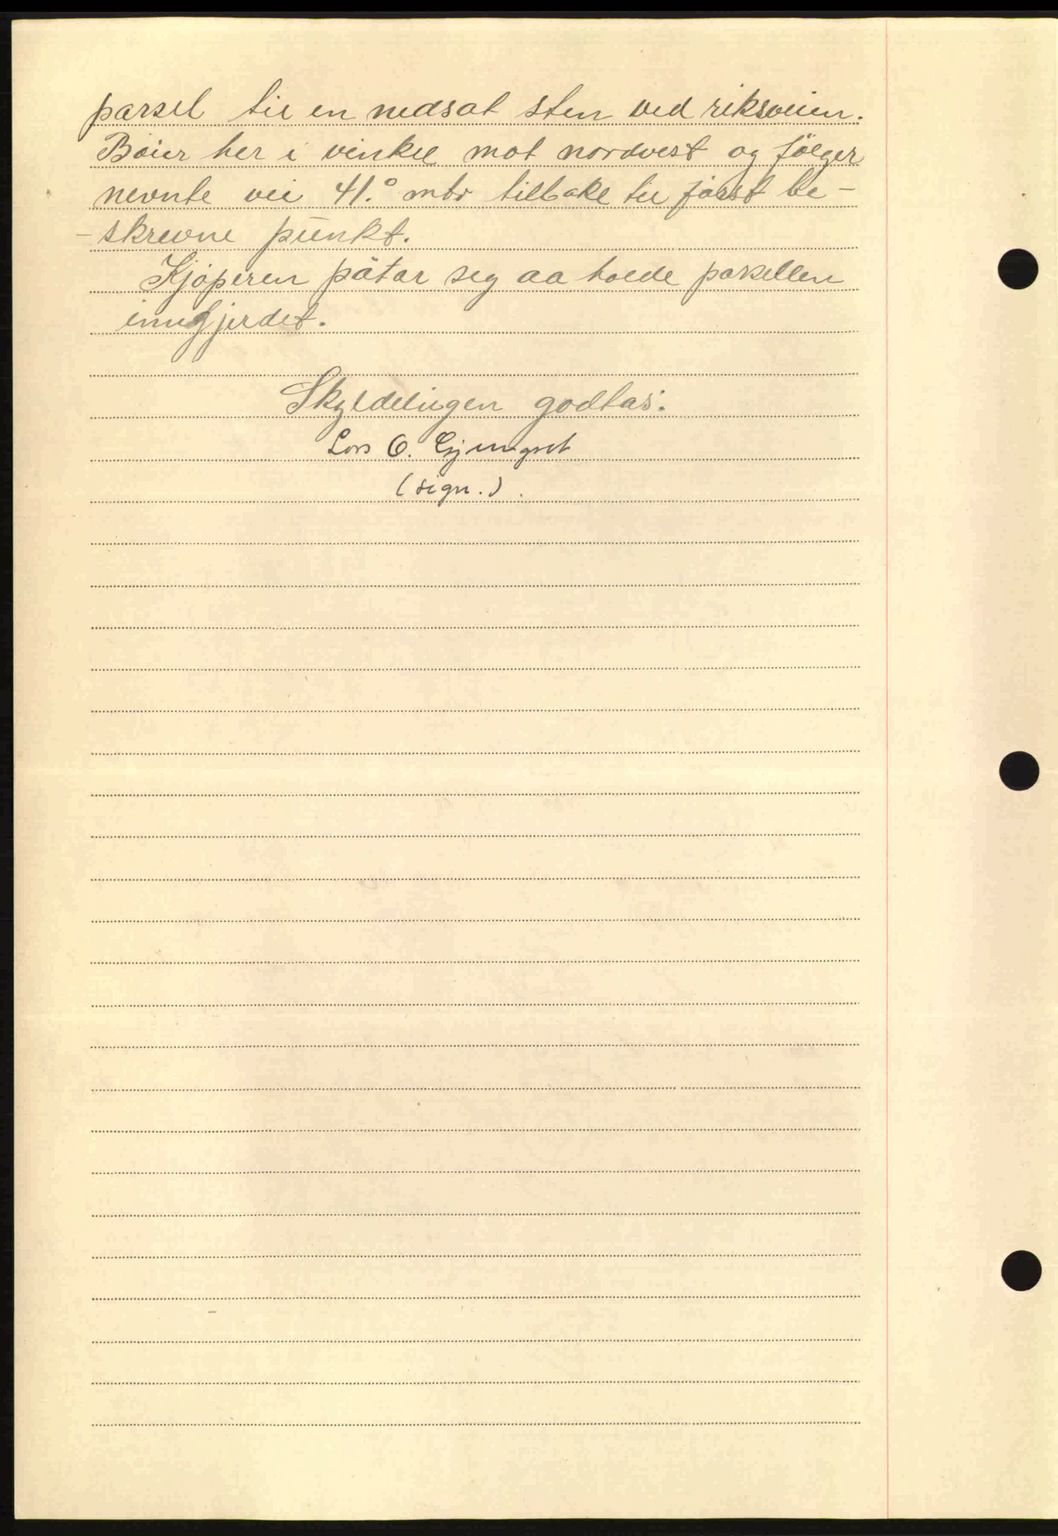 parsel til en nedsat sten ved riksveien.
Bøier her i vinkel mot nordvest og følger
nevnte vei 41.º mtr tilbake til først be-
-skrevne punkt.
Kjøperen påtar seg aa holde parsellen
inngjerdet.
Skyldelingen godtas:
Lars O.
(sign.).